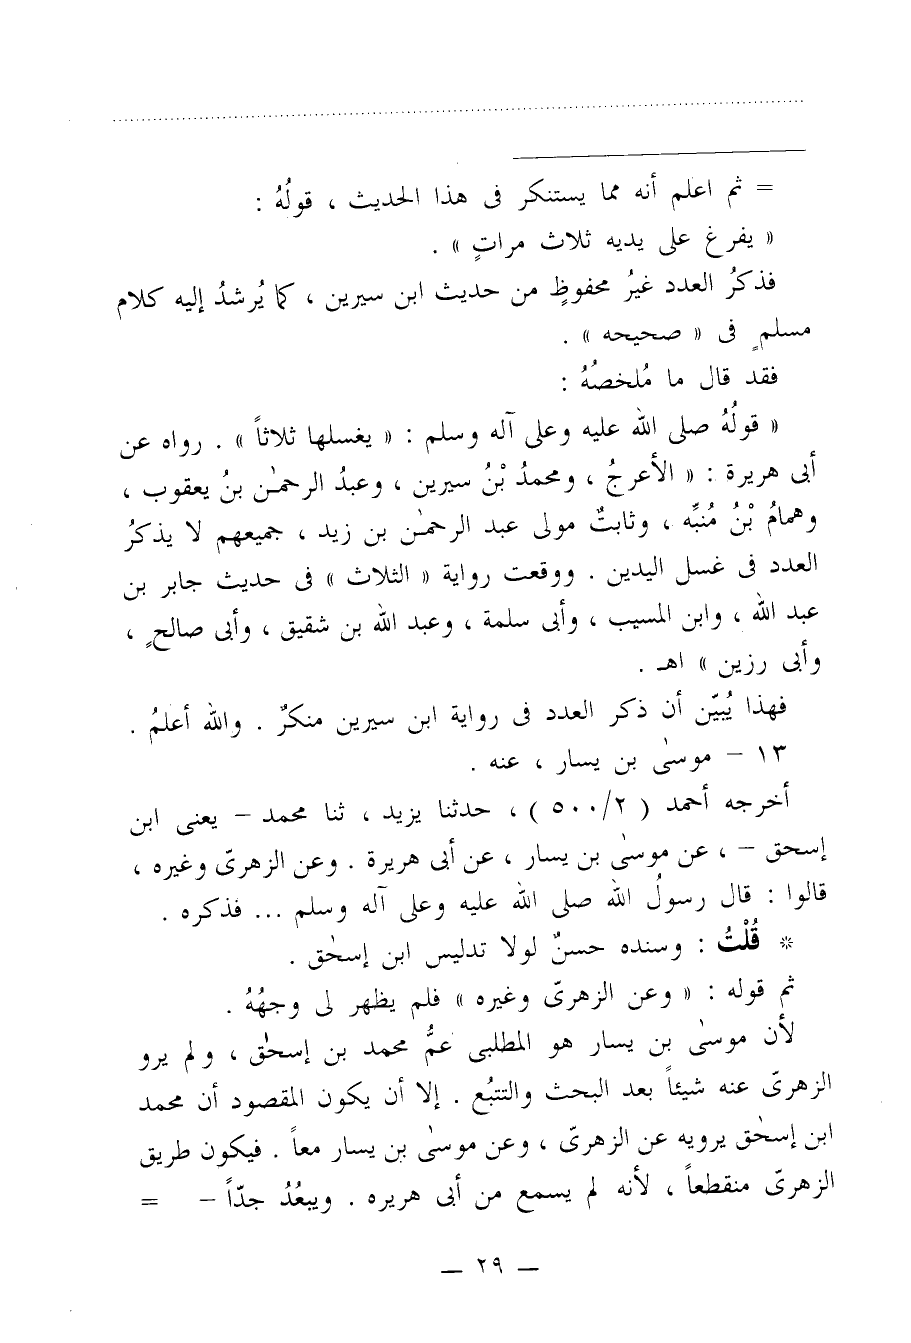 = ثم اعلم أنه مما يستنكر فى هذا الحديث ، قولُهُ :
« يفرغ على يديه ثلاث مراتٍ » .
فذكرُ العدد غيرُ محفوظٍ من حديث ابن سيرين ، كما يُرشدُ إليه كلام
مسلمٍ فى « صحيحه » .
فقد قال ما مُلخصُهُ :
« قولُهُ صلى الله عليه وعلى آله وسلم : « يغسلها ثلاثاً » . رواه عن
أبى هريرة : « الأعرجُ ، ومحمدُ بْنُ سيرين ، وعبدُ الرحمٰن بنُ يعقوب ،
وهمامُ بْنُ مُنبِّه ، وثابتٌ مولى عبد الرحمٰن بن زيد ، جميعهم لا يذكرُ
العدد فى غسل اليدين . ووقعت رواية « الثلاث » فى حديث جابر بن
عبد الله ، وابن المسيب ، وأبى سلمة ، وعبد الله بن شقيق ، وأبى صالحٍ ،
وأبى رزين » اهـ .
فهذا يُبيّن أن ذكر العدد فى رواية ابن سيرين منكرٌ . والله أعلمُ .
١٣ – موسىٰ بن يسار ، عنه .
أخرجه أحمد ( ٢/ ٥٠٠ ) ، حدثنا يزيد ، ثنا محمد – يعنى ابن
إسحق – ، عن موسىٰ بن يسار ، عن أبى هريرة . وعن الزهرىّ وغيره ،
قالوا : قال رسولُ الله صلى الله عليه وعلى آله وسلم ... فذكره .
* قُلْتُ : وسنده حسنٌ لولا تدليس ابن إسحٰق .
ثم قوله : « وعن الزهرىّ وغيره » فلم يظهر لى وجهُهُ .
لأن موسىٰ بن يسار هو المطلبى عمُّ محمد بن إسحٰق ، ولم يرو
الزهرىّ عنه شيئاً بعد البحث والتتبُع . إلا أن يكون المقصود أن محمد
ابن إسحٰق يرويه عن الزهرىّ ، وعن موسىٰ بن يسار معاً . فيكون طريق
الزهرىّ منقطعاً ، لأنه لم يسمع من أبى هريره . ويبعُدُ جدّاً – =
— ٢٩ —